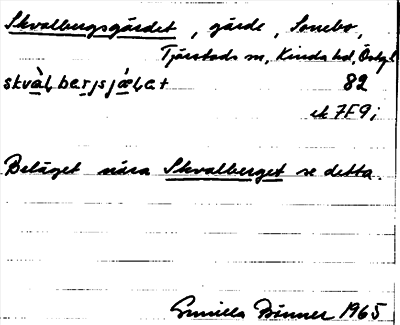 Skvalbergsgärdet, gärde, Sonebo,
Tjärstads sn, Kinda hd, Östgl
skvàlbærjsjælet 82
ek 7F9i
Beläget nära Skvalberget se detta.
Gunilla Bönner 1965